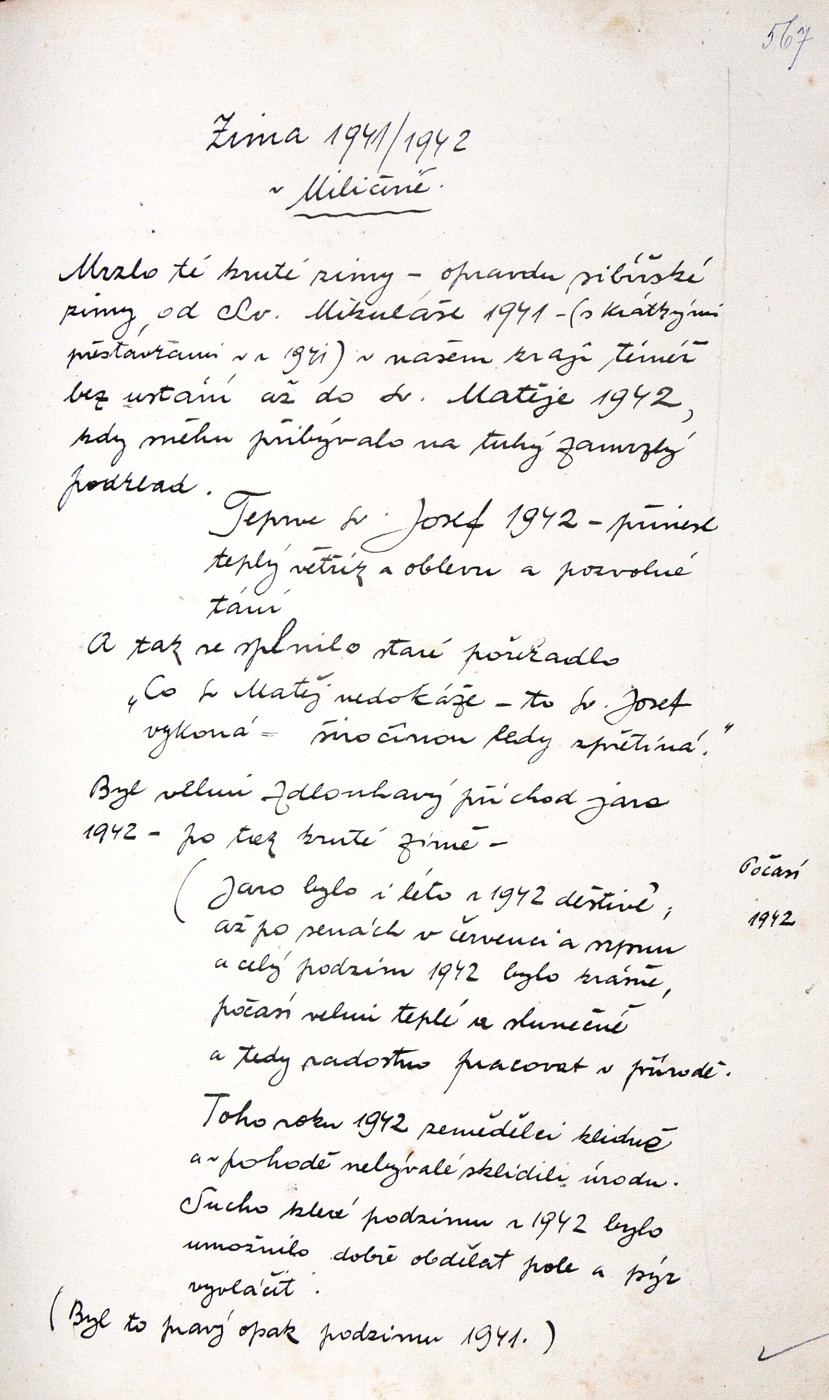 567
Zima 1941/1942
v Miličíně.
Mrzlo té kruté zimy – opravdu sibiřské
zimy, od Sv. Mikuláše 1941 – (s krátkými
přestávkami v r 1941) v našem kraji téměř
bez ustání až do Sv. Matěje 1942,
kdy sněhu přibývalo na tuhý zamrzlý
podklad.
Teprve Sv. Josef 1942 – přinesl
teplý větřík a oblevu a pozvolné
tání
A tak se splnilo staré pořekadlo
„Co Sv Matěj nedokáže – to Sv. Josef
vykoná – širočinou ledy zpřetíná."
Byl velmi zdlouhavý příchod jara
1942 – po tak kruté zimě –
(Jaro bylo i léto r 1942 deštivé,
až po senách v červenci a srpnu
a celý podzim 1942 bylo krásné,
počasí velmi teplé a slunečné
a tedy radostno pracovat v přírodě.
Počasí
1942
Toho roku 1942 zemědělci klidně
a v pohodě nebývalé sklidili úrodu.
Sucho které podzimu r 1942 bylo
umožnilo dobře obdělat pole a pýr
vyvláčit.
(Byl to pravý opak podzimu 1941.)